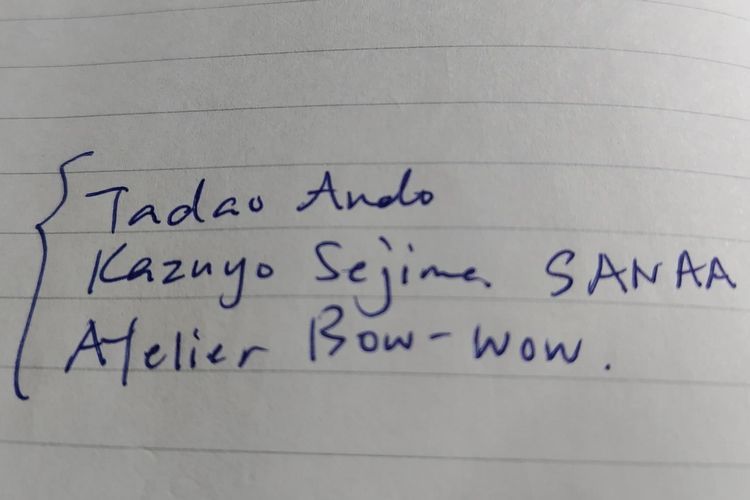 Tadao Ando
Kazuyo Sejima SANAA
Atelier Bow-Wow.